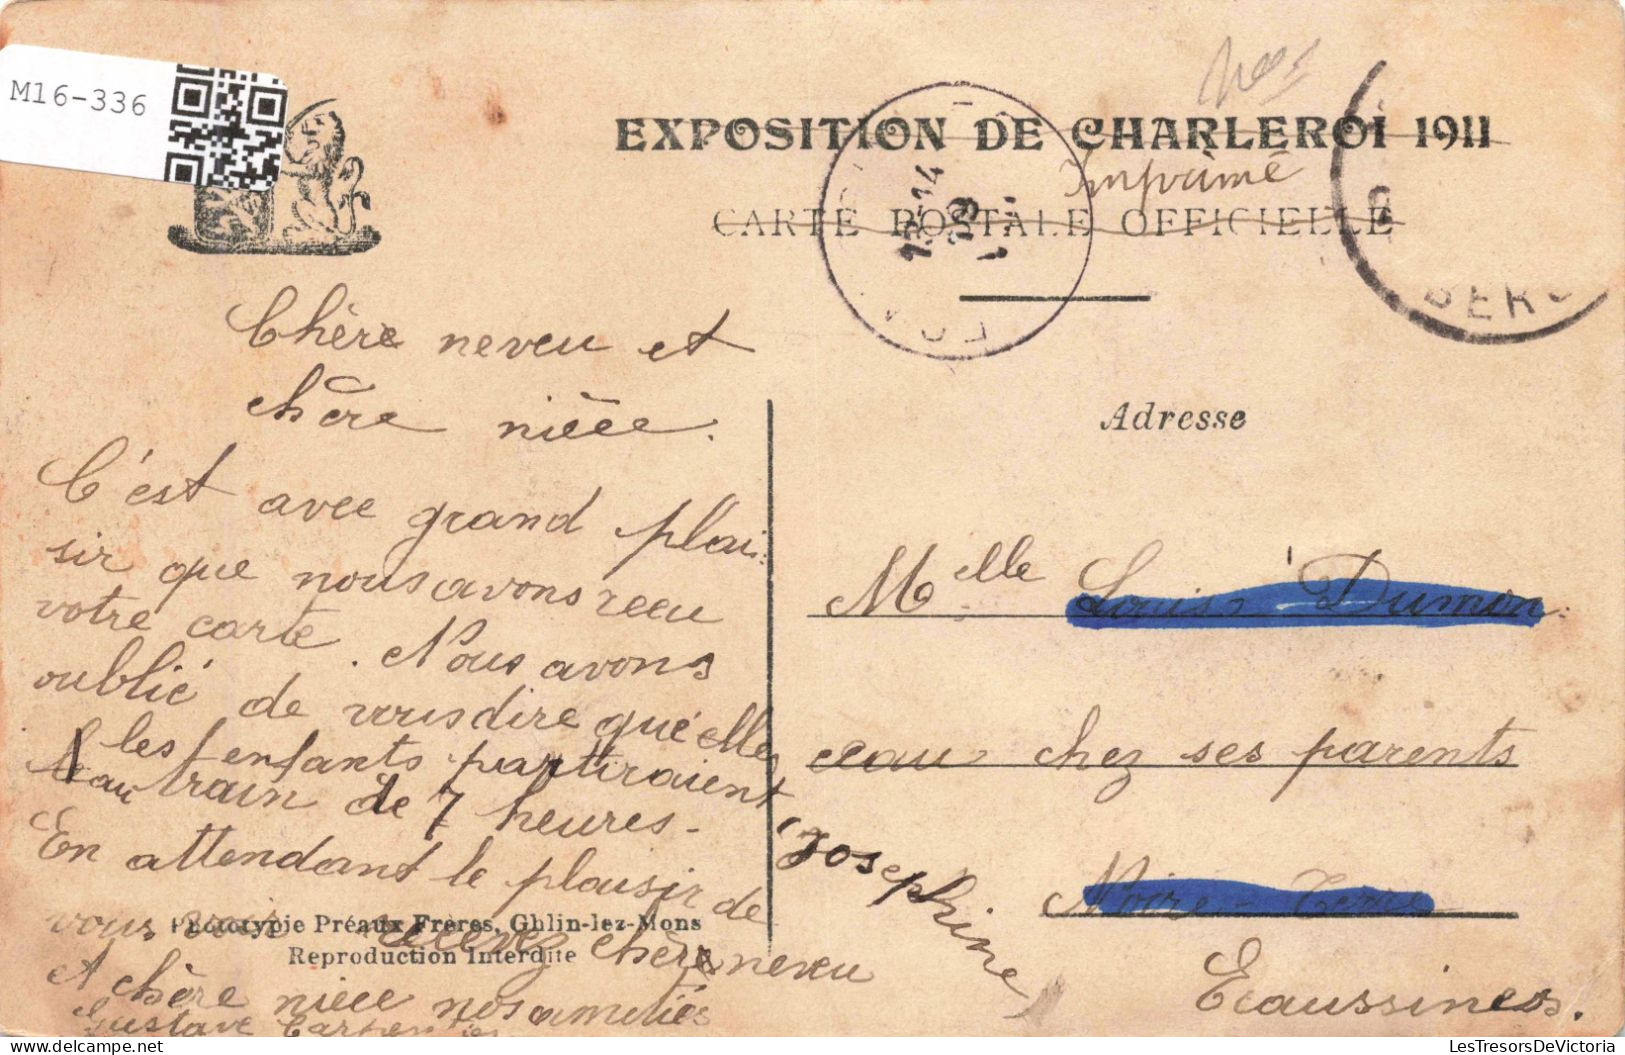 M16-336
EXPOSITION DE CHARLEROI 1911
Imprimé
CARTE POSTALE OFFICIELLE
Chère neveu et
chère nièce.
C'est avec grand plai-
sir que nous avons recu
votre carte. Nous avons
oublié de vous dire que elles
les enfants partiraient
au train de 7 heures.
En attendant le plaisir de
vous voir recevez chère neveu
et chère niece nos amitiés
Gustave
Josephine
Phototypie Préaux Frères, Ghlin-lez-Mons
Reproduction Interdite
Adresse
Melle Louise Dumon
chez ses parents
Noire-Terre
Ecaussines.
LesTresorsDeVictoria